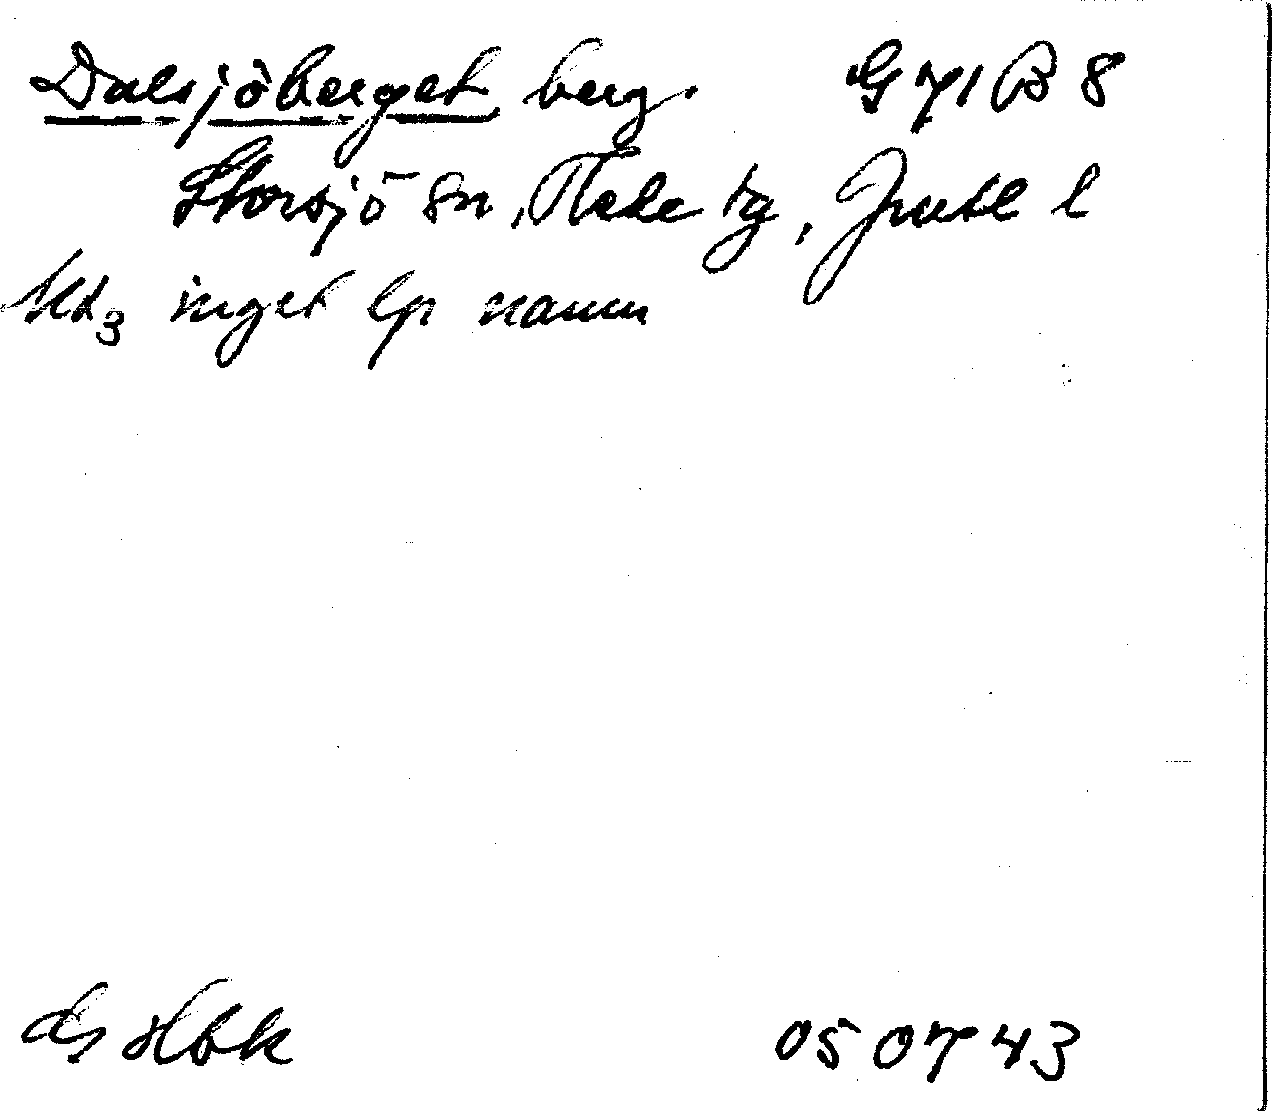 Dalsjöberget, berg. G 71 B 8
Storsjö sn, Hede tg, Jmtl l
Md3 inget lp namn
05 07 43